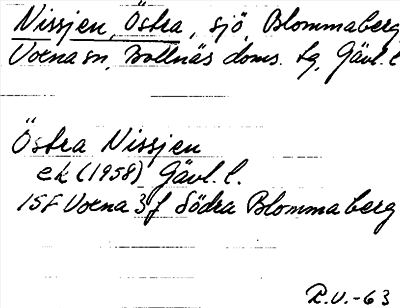 Nissjen, Östra, sjö, Blommaberg
Voxna sn, Bollnäs doms. tg, Gävl. l
Östra Nissjen
ek (1958) Gävl. l.
15F Voxna 3 f Södra Blommaberg
R.U.-63